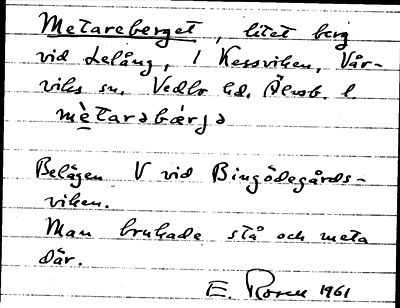 Metareberget, litet berg
vid Lelång, i Kessviken, Vår-
viks sn. Vedbo hd. Älvsb. l.
mètarəbærjə
Belägen V vid Bingödegårds-
viken.
Man brukade stå och meta
där.
E. Rosell 1961